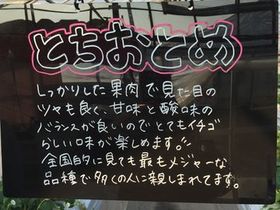 とちおとめ
しっかりした果肉で見た目の
ツヤも良く、甘味と酸味の
バランスが良いのでとてもイチゴ
らしい味が楽しめます!!
全国的に見ても最もメジャーな
品種で多くの人に親しまれてます。